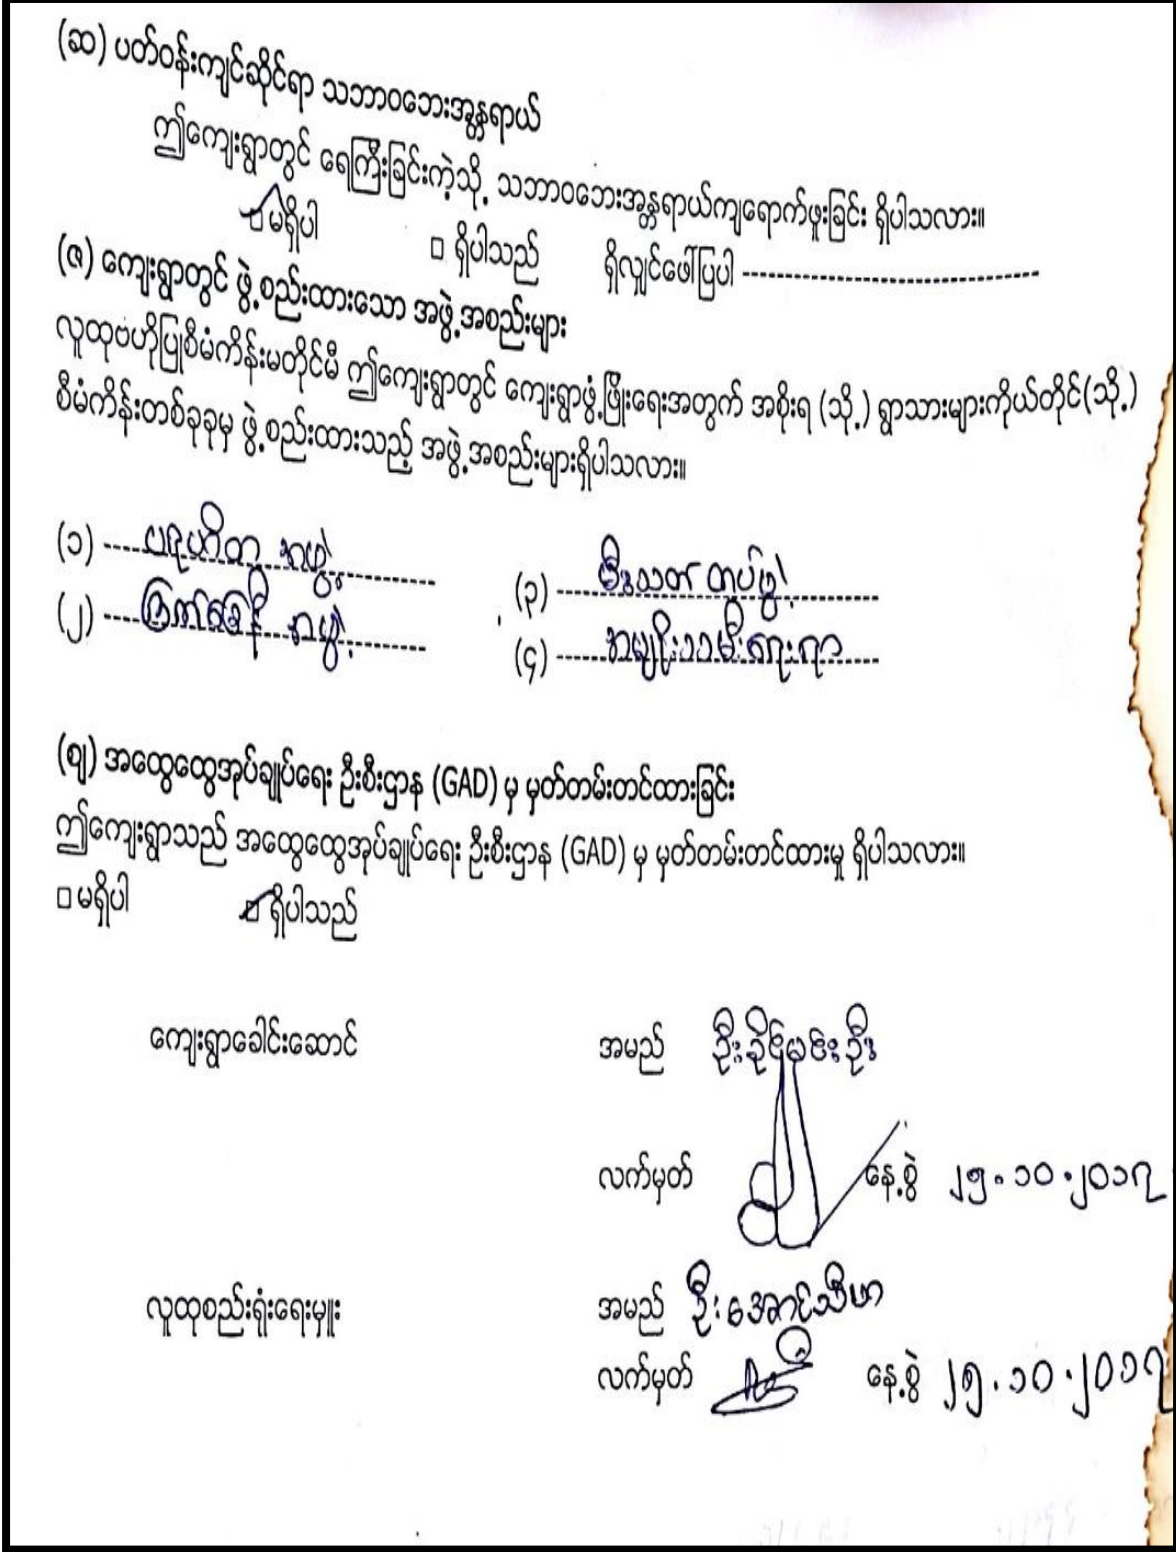 (ဆ) ပတ်ဝန်းကျင်ဆိုင်ရာ သဘာဝဘေးအန္တရာယ်
ဤကျေးရွာတွင် ရေကြီးခြင်းကဲ့သို့ သဘာဝဘေးအန္တရာယ်ကျရောက်ဖူးခြင်း ရှိပါသလား။
☑ မရှိပါ □ ရှိပါသည် ရှိလျှင်ဖေါ်ပြပါ ------------------------------
(ဇ) ကျေးရွာတွင် ဖွဲ့စည်းထားသော အဖွဲ့အစည်းများ
လူထုဗဟိုပြုစီမံကိန်းမတိုင်မီ ဤကျေးရွာတွင် ကျေးရွာဖွံ့ဖြိုးရေးအတွက် အစိုးရ (သို့) ရွာသားများကိုယ်တိုင်(သို့)
စီမံကိန်းတစ်ခုခုမှ ဖွဲ့စည်းထားသည့် အဖွဲ့အစည်းများရှိပါသလား။
(၁) ပရဟိတ အဖွဲ့ (၃) မီးသတ် တပ်ဖွဲ့
(၂) ကြက်ခြေနီ အဖွဲ့ (၄) အမျိုးသမီးရေးရာ
(ဈ) အထွေထွေအုပ်ချုပ်ရေး ဦးစီးဌာန (GAD) မှ မှတ်တမ်းတင်ထားခြင်း
ဤကျေးရွာသည် အထွေထွေအုပ်ချုပ်ရေး ဦးစီးဌာန (GAD) မှ မှတ်တမ်းတင်ထားမှု ရှိပါသလား။
□ မရှိပါ ☑ ရှိပါသည်
ကျေးရွာခေါင်းဆောင် အမည် ဦးခိုင်မင်းဦး
လက်မှတ် နေ့စွဲ ၂၅.၁၀.၂၀၁၇
လူထုစည်းရုံးရေးမှူး အမည် ဦးအောင်သီဟ
လက်မှတ် နေ့စွဲ ၂၅.၁၀.၂၀၁၇